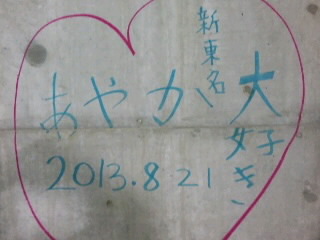 新東名
あやか大好き
2013.8 21